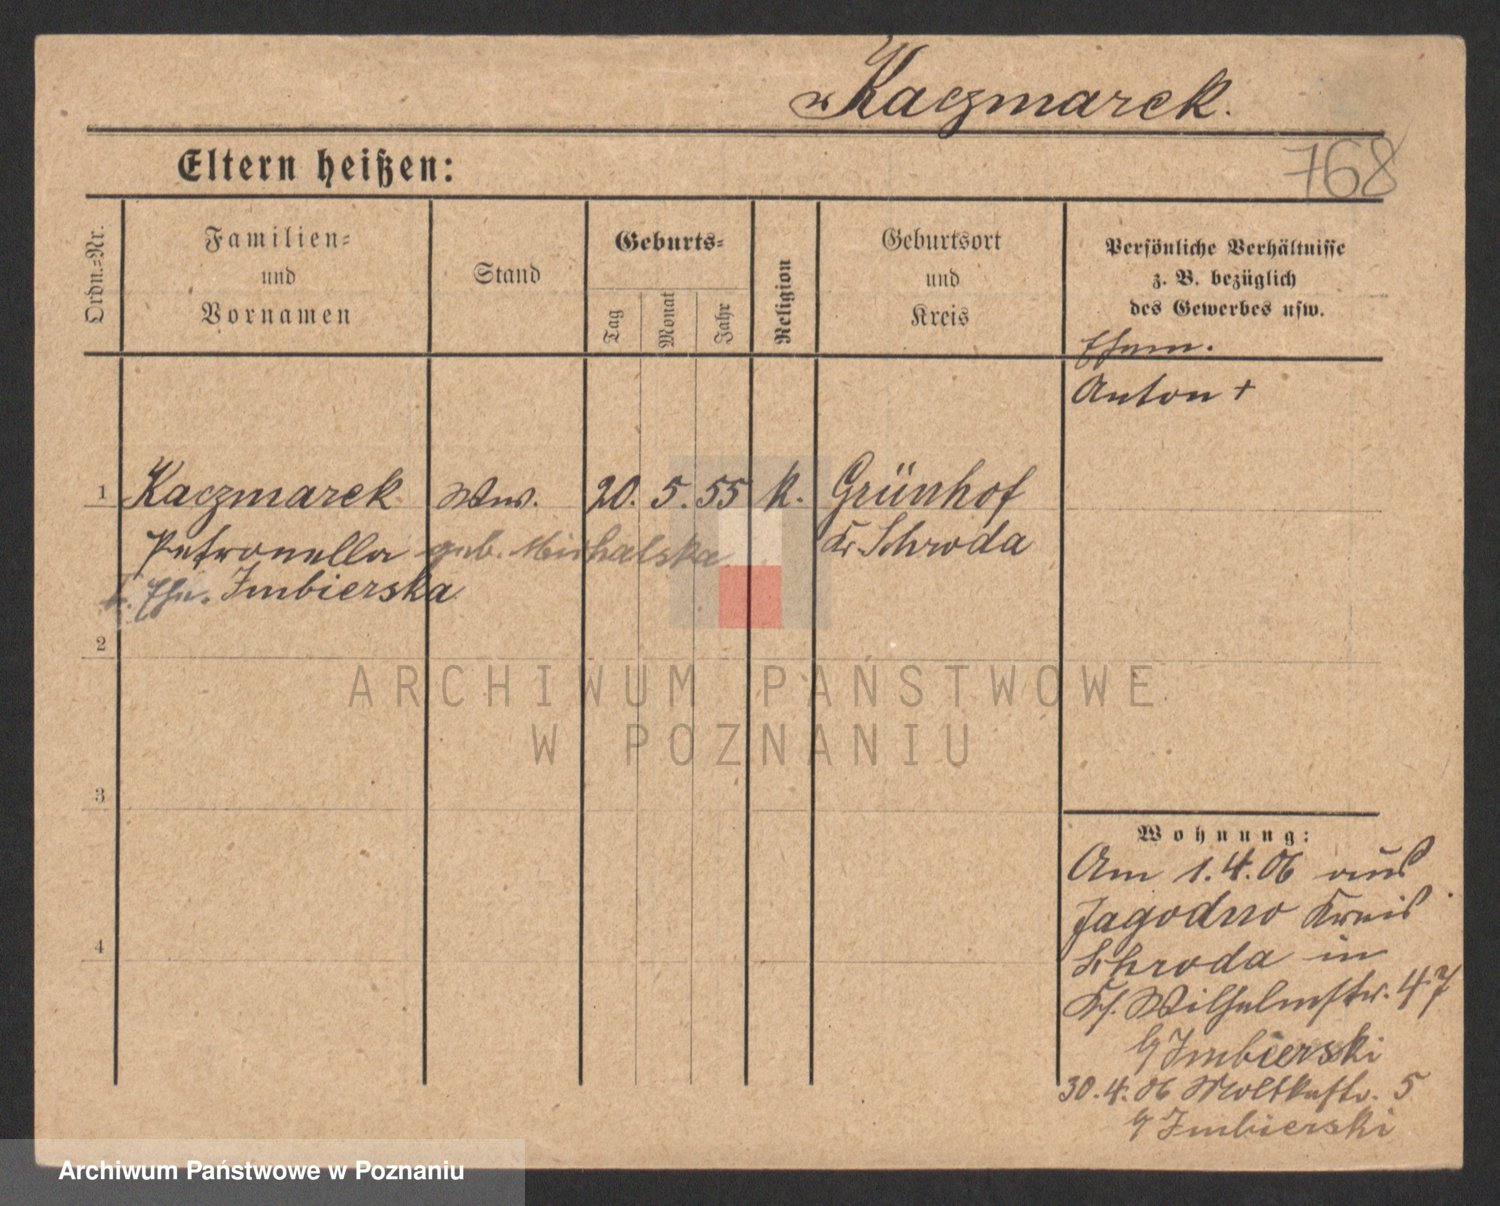 Kaczmarek.
768
Eltern heißen:
Ordn.-Nr.
Familien-
und
Vornamen
Stand
Geburts-
Tag
Monat
Jahr
Religion
Geburtsort
und
Kreis
Persönliche Verhältnisse
z. B. bezüglich
des Gewerbes usw.
Ehem.
Anton +
1 Kaczmarek Ww. 20. 5. 55 k. Grünhof
Petronella geb. Michalska Kr. Schroda
Imbierska
2
3
4
Wohnung:
Am 1.4.06 aus
Jagodno Kreis
Schroda in
Wilhelmstr. 47
b/ Imbierski
30.4.06 Moltkestr. 5
b/ Imbierski
ARCHIWUM PAŃSTWOWE
W POZNANIU
Archiwum Państwowe w Poznaniu